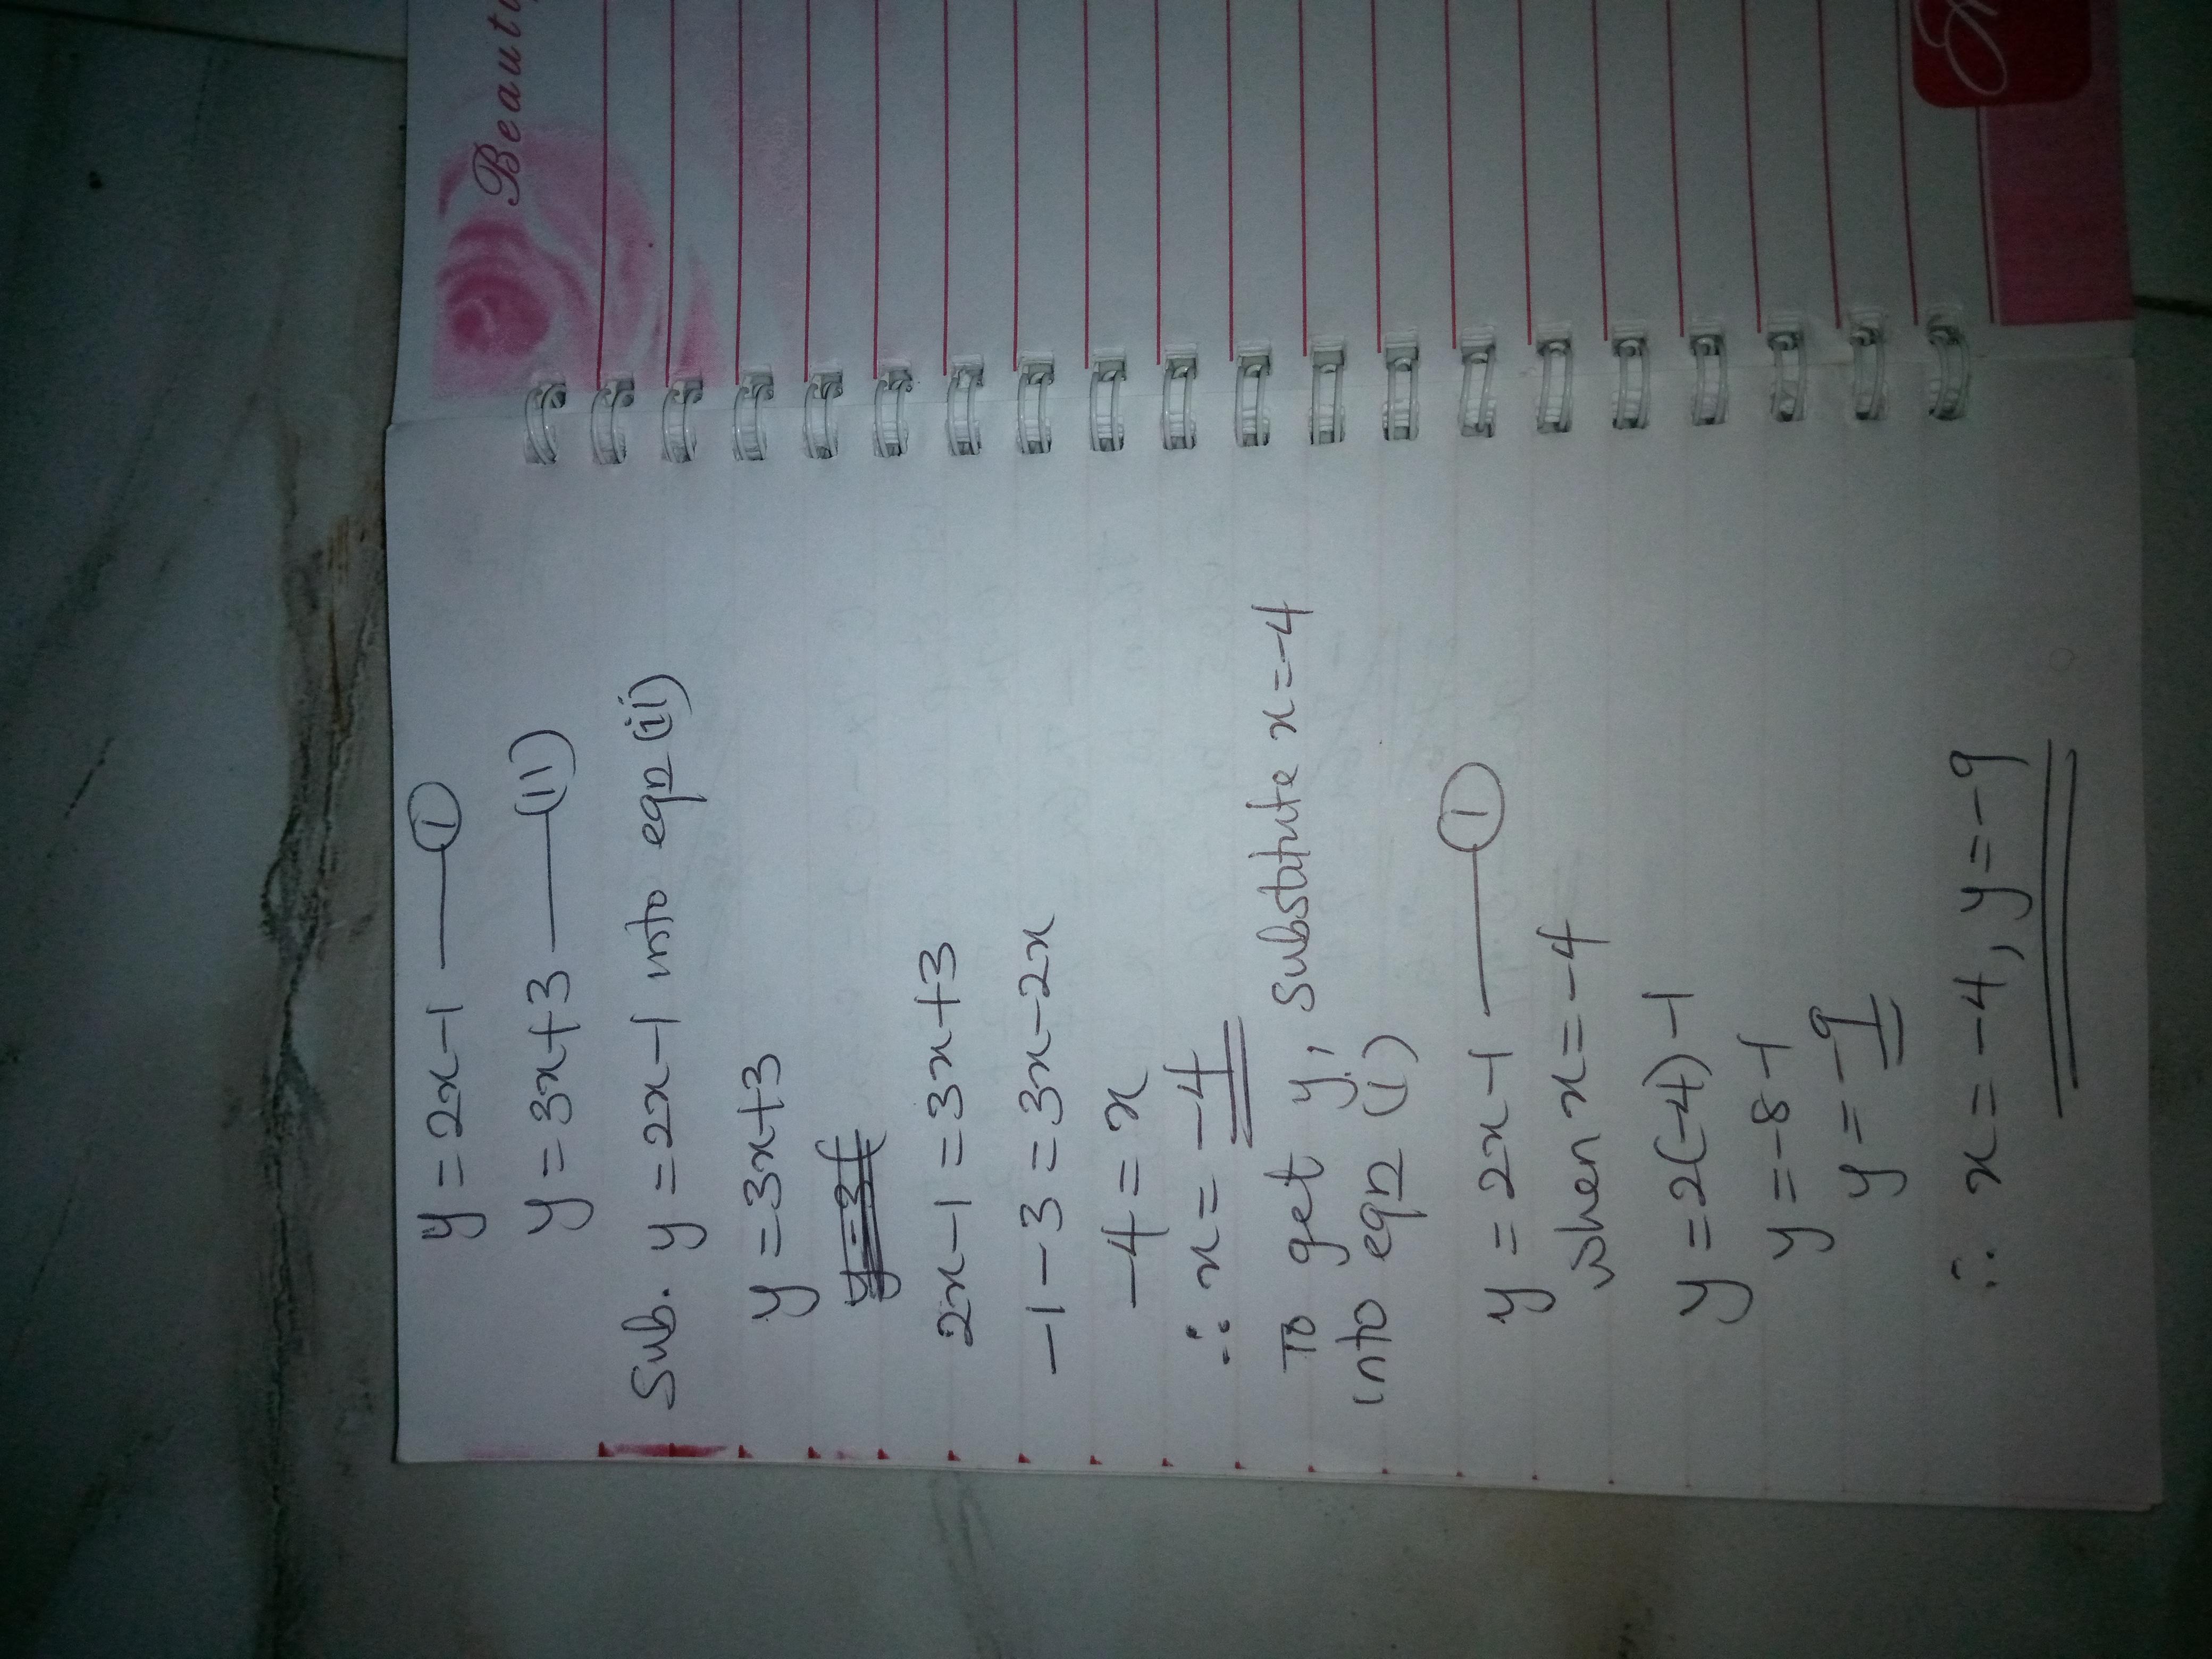 Beauti
y = 2x-1 —— (i)
y = 3x+3 —— (ii)
Sub. y = 2x-1 into eqn (ii)
y = 3x+3
2x-1 = 3x+3
-1-3 = 3x-2x
-4 = x
∴ x = -4
To get y, substitute x=-4
into eqn (i)
y = 2x-1 —— (i)
when x = -4
y = 2(-4)-1
y = -8-1
y = -9
∴ x = -4, y = -9